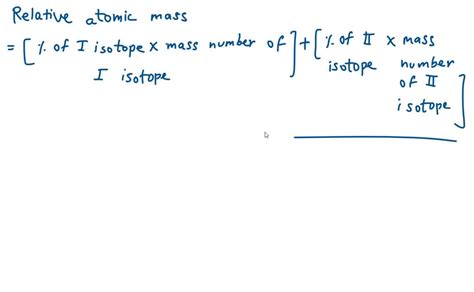 Relative atomic mass
= [ % of I isotope × mass number of ] + [ % of II × mass
I isotope isotope number
of II
isotope ]